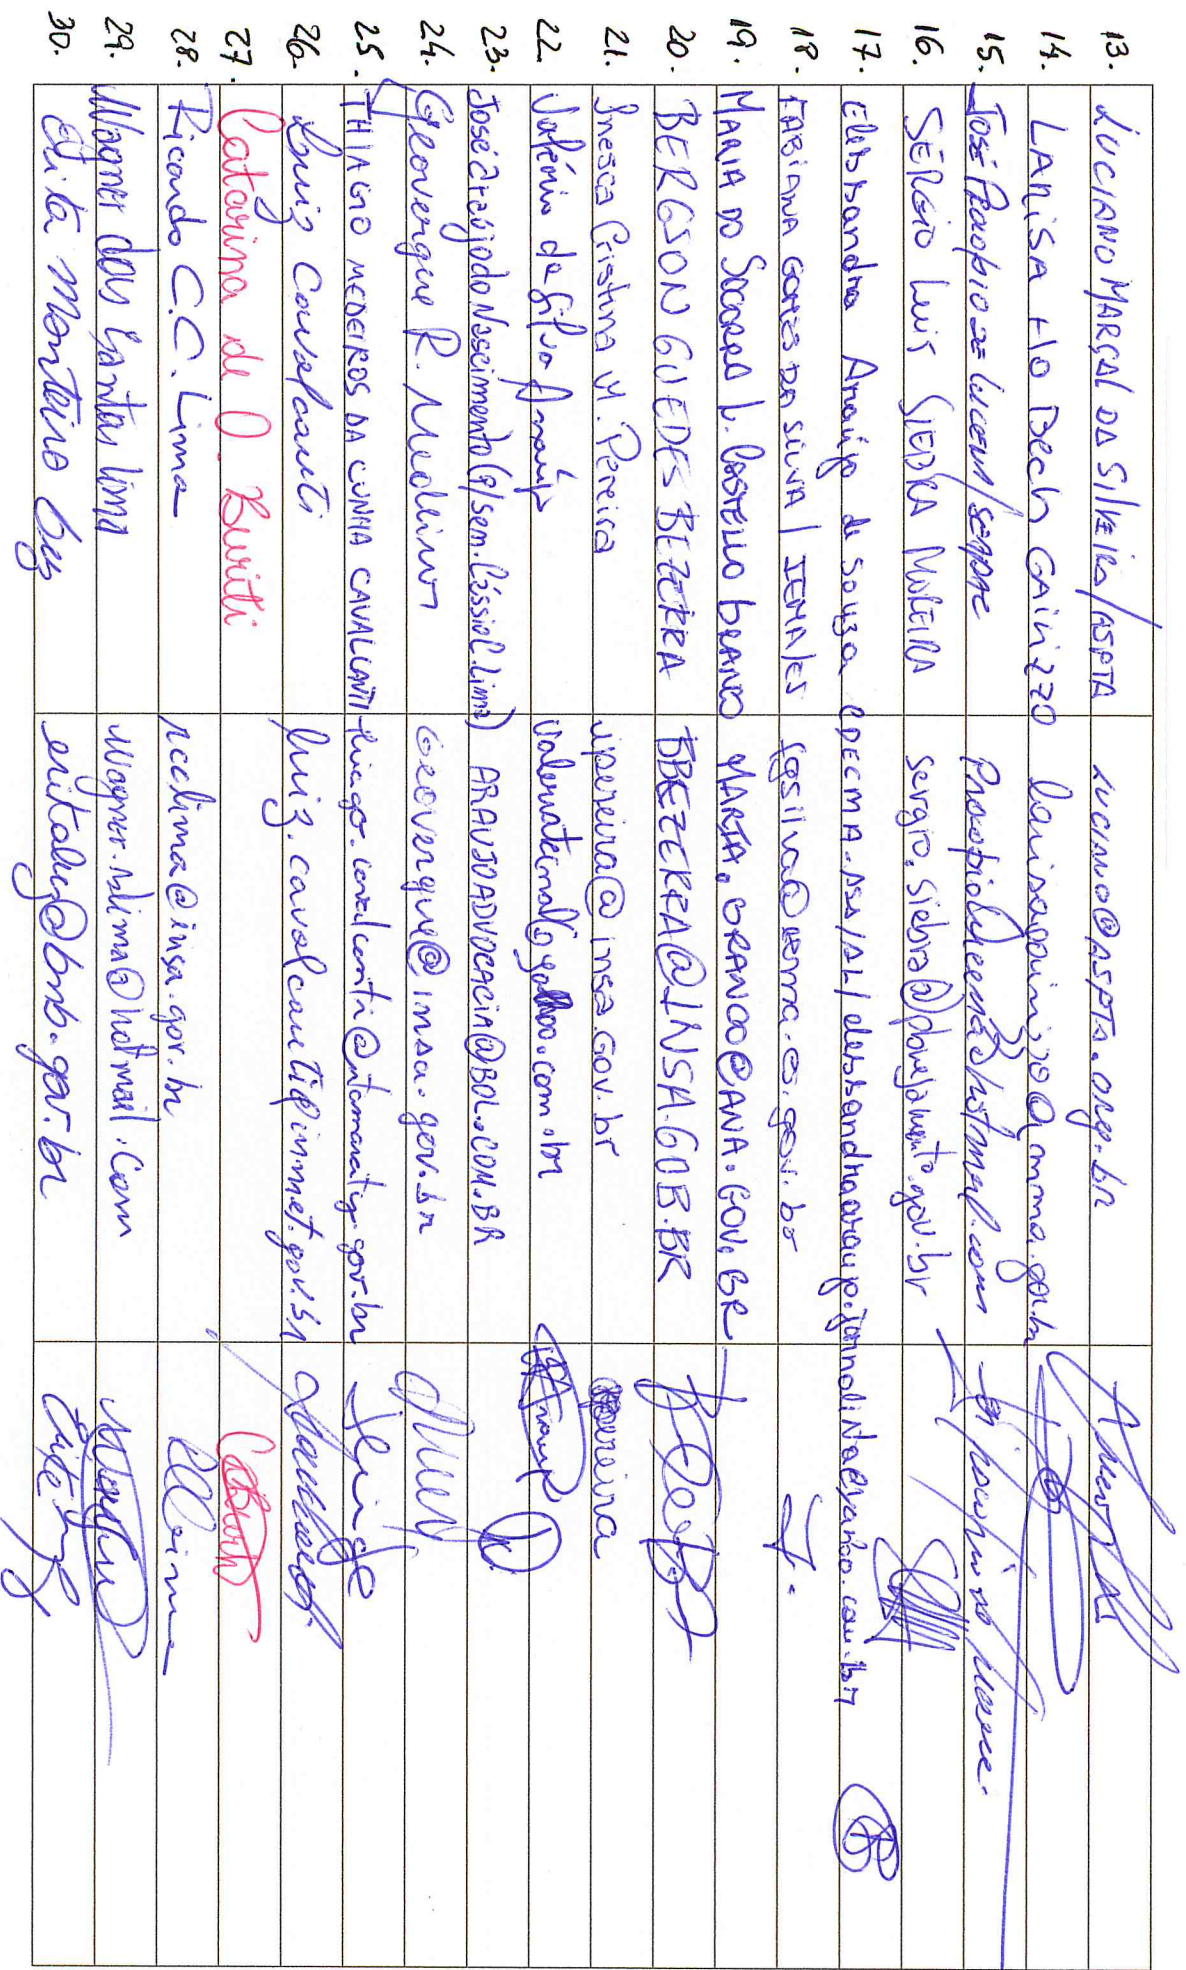 13. LUCIANO MARÇAL DA SILVEIRA/ASPTA luciano@ASPTA.org.br
14. LARISA HO BECH GAIVIZZO larisagaivizzo@mma.gov.br
15. José Procópio de Lucena/SEAPAC Procopiolucena@hotmail.com
16. SÉRGIO Luis SIEBRA MOREIRA sergio.siebra@planejamento.gov.br
17. Elessandra Araújo de Souza CPDECMA-ASA/AL/elessandraaraujo.jornalista@yahoo.com.br
18. FABIANA GOMES DA SILVA / IEMA/ES fgsilva@iema.es.gov.br
19. MARIA DO SOCORRO L. CASTELLO BRANCO MARIA.BRANCO@ANA.GOV.BR
20. BERGSON GUEDES BEZERRA BBEZERRA@INSA.GOB.BR
21. Inessa Cristina M. Pereira ipereira@insa.gov.br
22. Valério da Silva Araújo
23. José Araújo do Nascimento (g/sem. Cássio C. Lima) ARAUJOADVOCACIA@BOL.COM.BR
24. Geovergue R. Medeiros Geovergue@insa.gov.br
25. THIAGO MEDEIROS DA CUNHA CAVALCANTI thiago.cavalcanti@itamaraty.gov.br
26. Luiz Cavalcanti luiz.cavalcanti@inmet.gov.br
27. Catarina de O. Buriti
28. Ricardo C.C. Lima rcclima@insa.gov.br
29. Wagner dos Santos Lima Wagner.slima@hotmail.com
30. Érita Monteiro eritaluz@bnb.gov.br